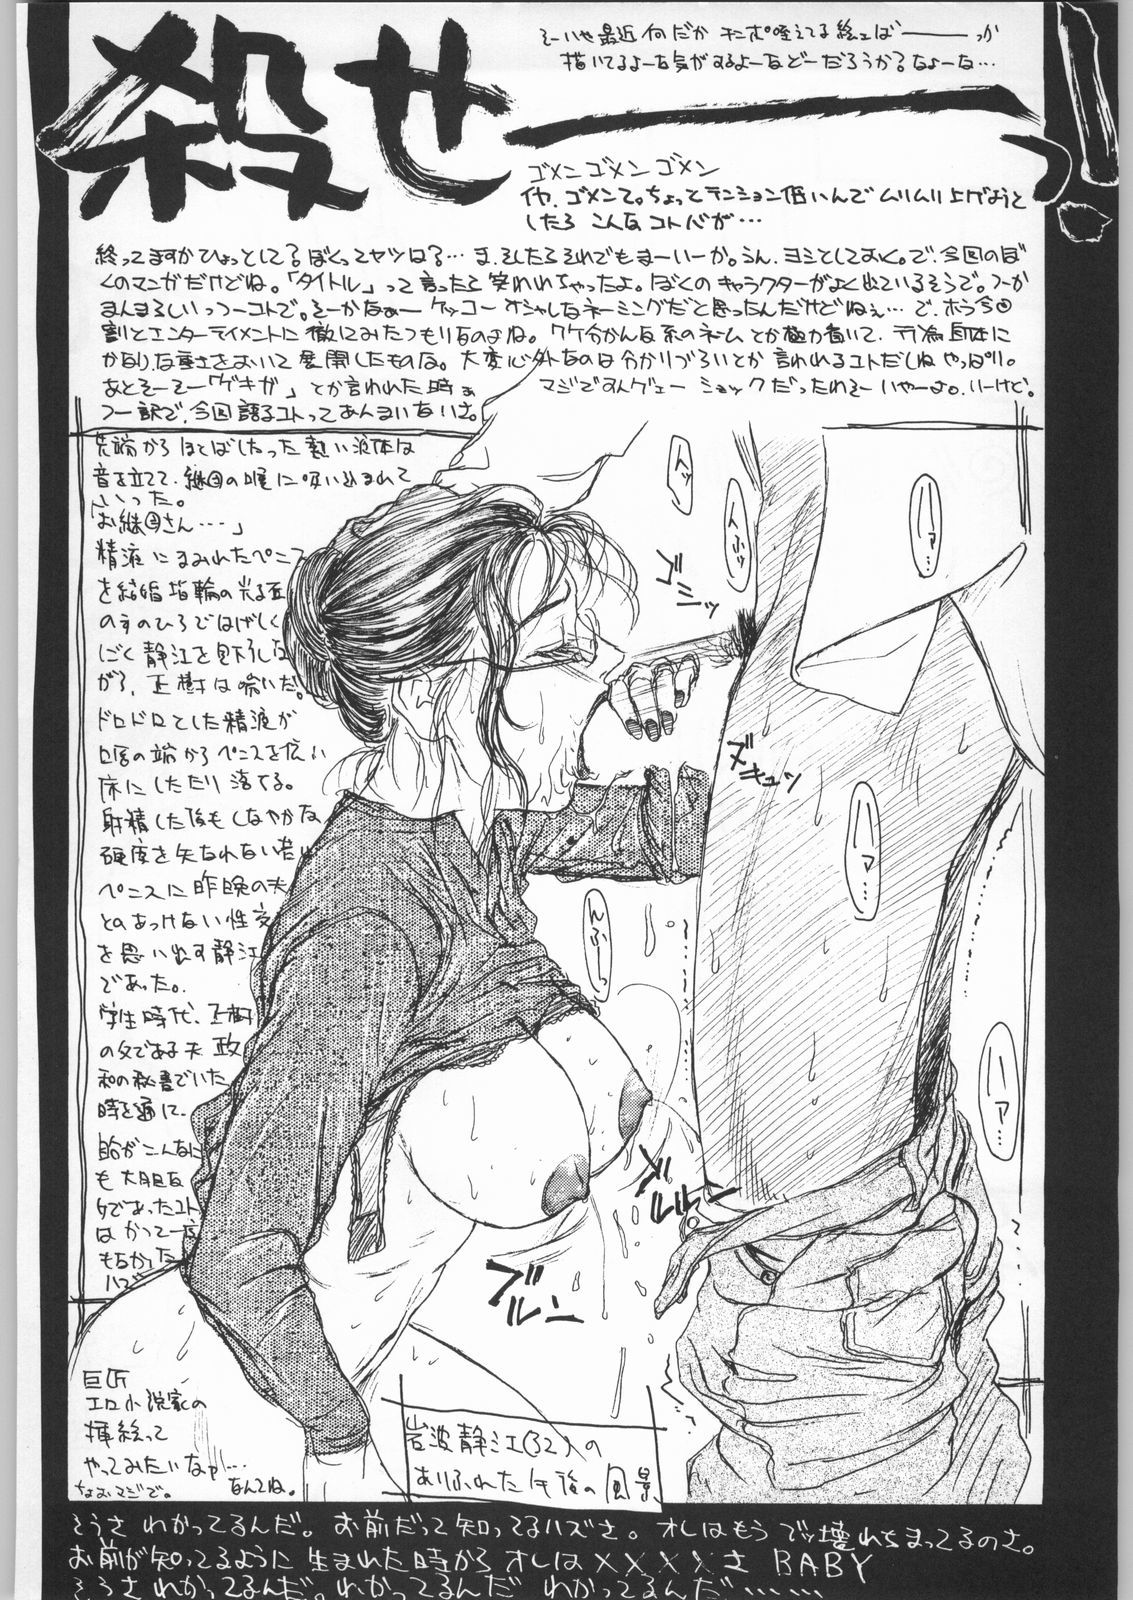 殺せーっ!!
そーいや最近何だかチ○ポ咥えてる絵ェばーーっか
描いてるよーな気がするよーなどーだろうか?なよーな…
ゴメンゴメンゴメン
イヤ、ゴメンて。ちょっとテンション低いんでムリムリ上げようと
したらこんなコトバが…
終ってますかひょっとして?ぼくってヤツは?…ま、そしたらそれでもまーいーか。うん、ヨシとしておく。で、今回のぼ
くのマンガだけどね。「タイトル」って言ったら笑われちゃったよ。ぼくのキャラクターがよく出ているそうで。つーか
まんまるしいっつーコトで。そーかなぁーケッコーオシャレなネーミングだと思ったんだけどねぇ…で、ホラ今回
割とエンターテイメントに徹してみたつもりなのよね。ワケ分かんな系のネームとか極力省いて、行為自体に
かなりな重さをおいて展開したものな。大変心外なのは分かりづらいとか言われるコトだしねやっぱり。
あとそーそー「ゲキガ」とか言われた時ぁ マジですんゲェーショックだったわそーいやーよ。いーけど。
つー訳で、今回語るコトってあんまいないさ。
先端からほとばしった熱い液体は
音を立てて、継母の喉に吸い込まれて
いった。
「お継母さん….」
精液にまみれたペニス
を結婚指輪の光る
のてのひらではげしく
しごく静江を見下ろしな
がら、正樹は喘いだ。
ドロドロとした精液が
口唇の端からペニスを伝い
床にしたたり落てる。
射精した後もしなやかな
硬度を失なわない若い
ペニスに昨晩の夫
とのあっけない性交
を思い出す静江
であった。
学生時代、正樹
の父である夫政
和の秘書でいた
時を通じ、
自分がこんなに
も大胆な
であったコト
はかつて一度
もなかった
ハズ
ハァ…
ハァ…
ハァ…
んふーっ
ズキュッ
ブルン
ブルルン
巨匠
エロ小説家の
挿絵って
やってみたいなァ…
なおマジで。
なんてね。
岩波静江(32)の
ありふれた午後の風景
そうさわかってるんだ。お前だって知ってるハズさ。オレはもうブッ壊れちまってるのさ。
お前が知ってるように生まれた時からオレは××××さBABY
そうさわかってるんだ。わかってるんだ わかってるんだ……